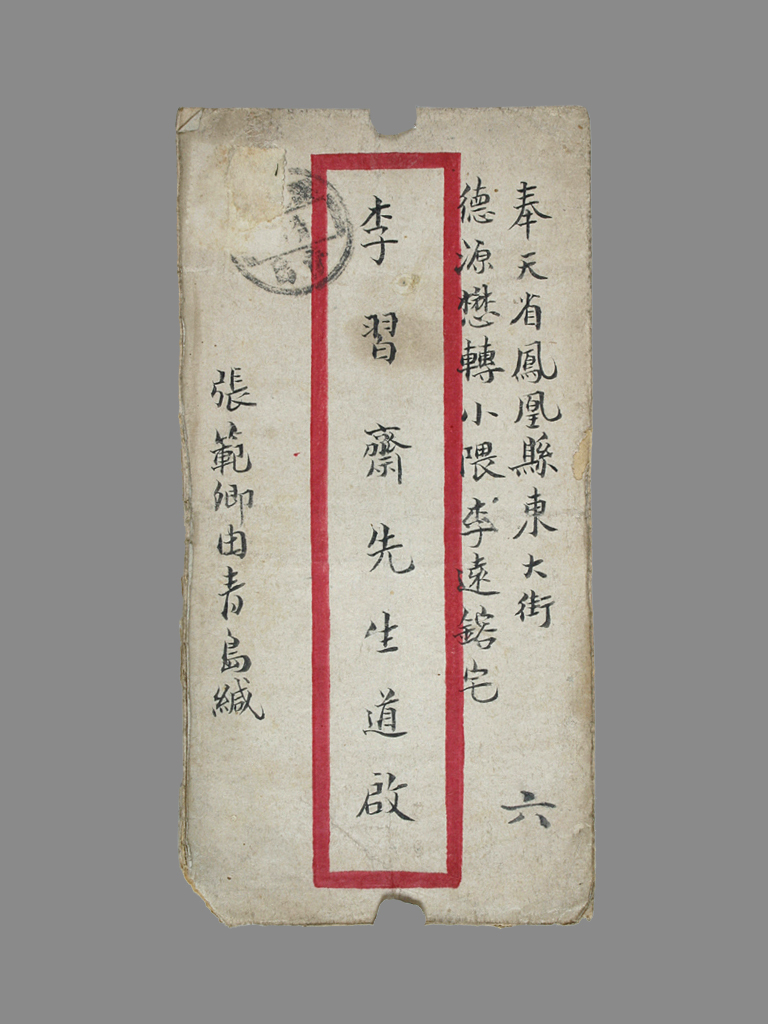 奉天省鳳凰縣東大街
德源懋轉小隈李遠鎔宅
六
李習齋先生道啟
張範卿由青島緘